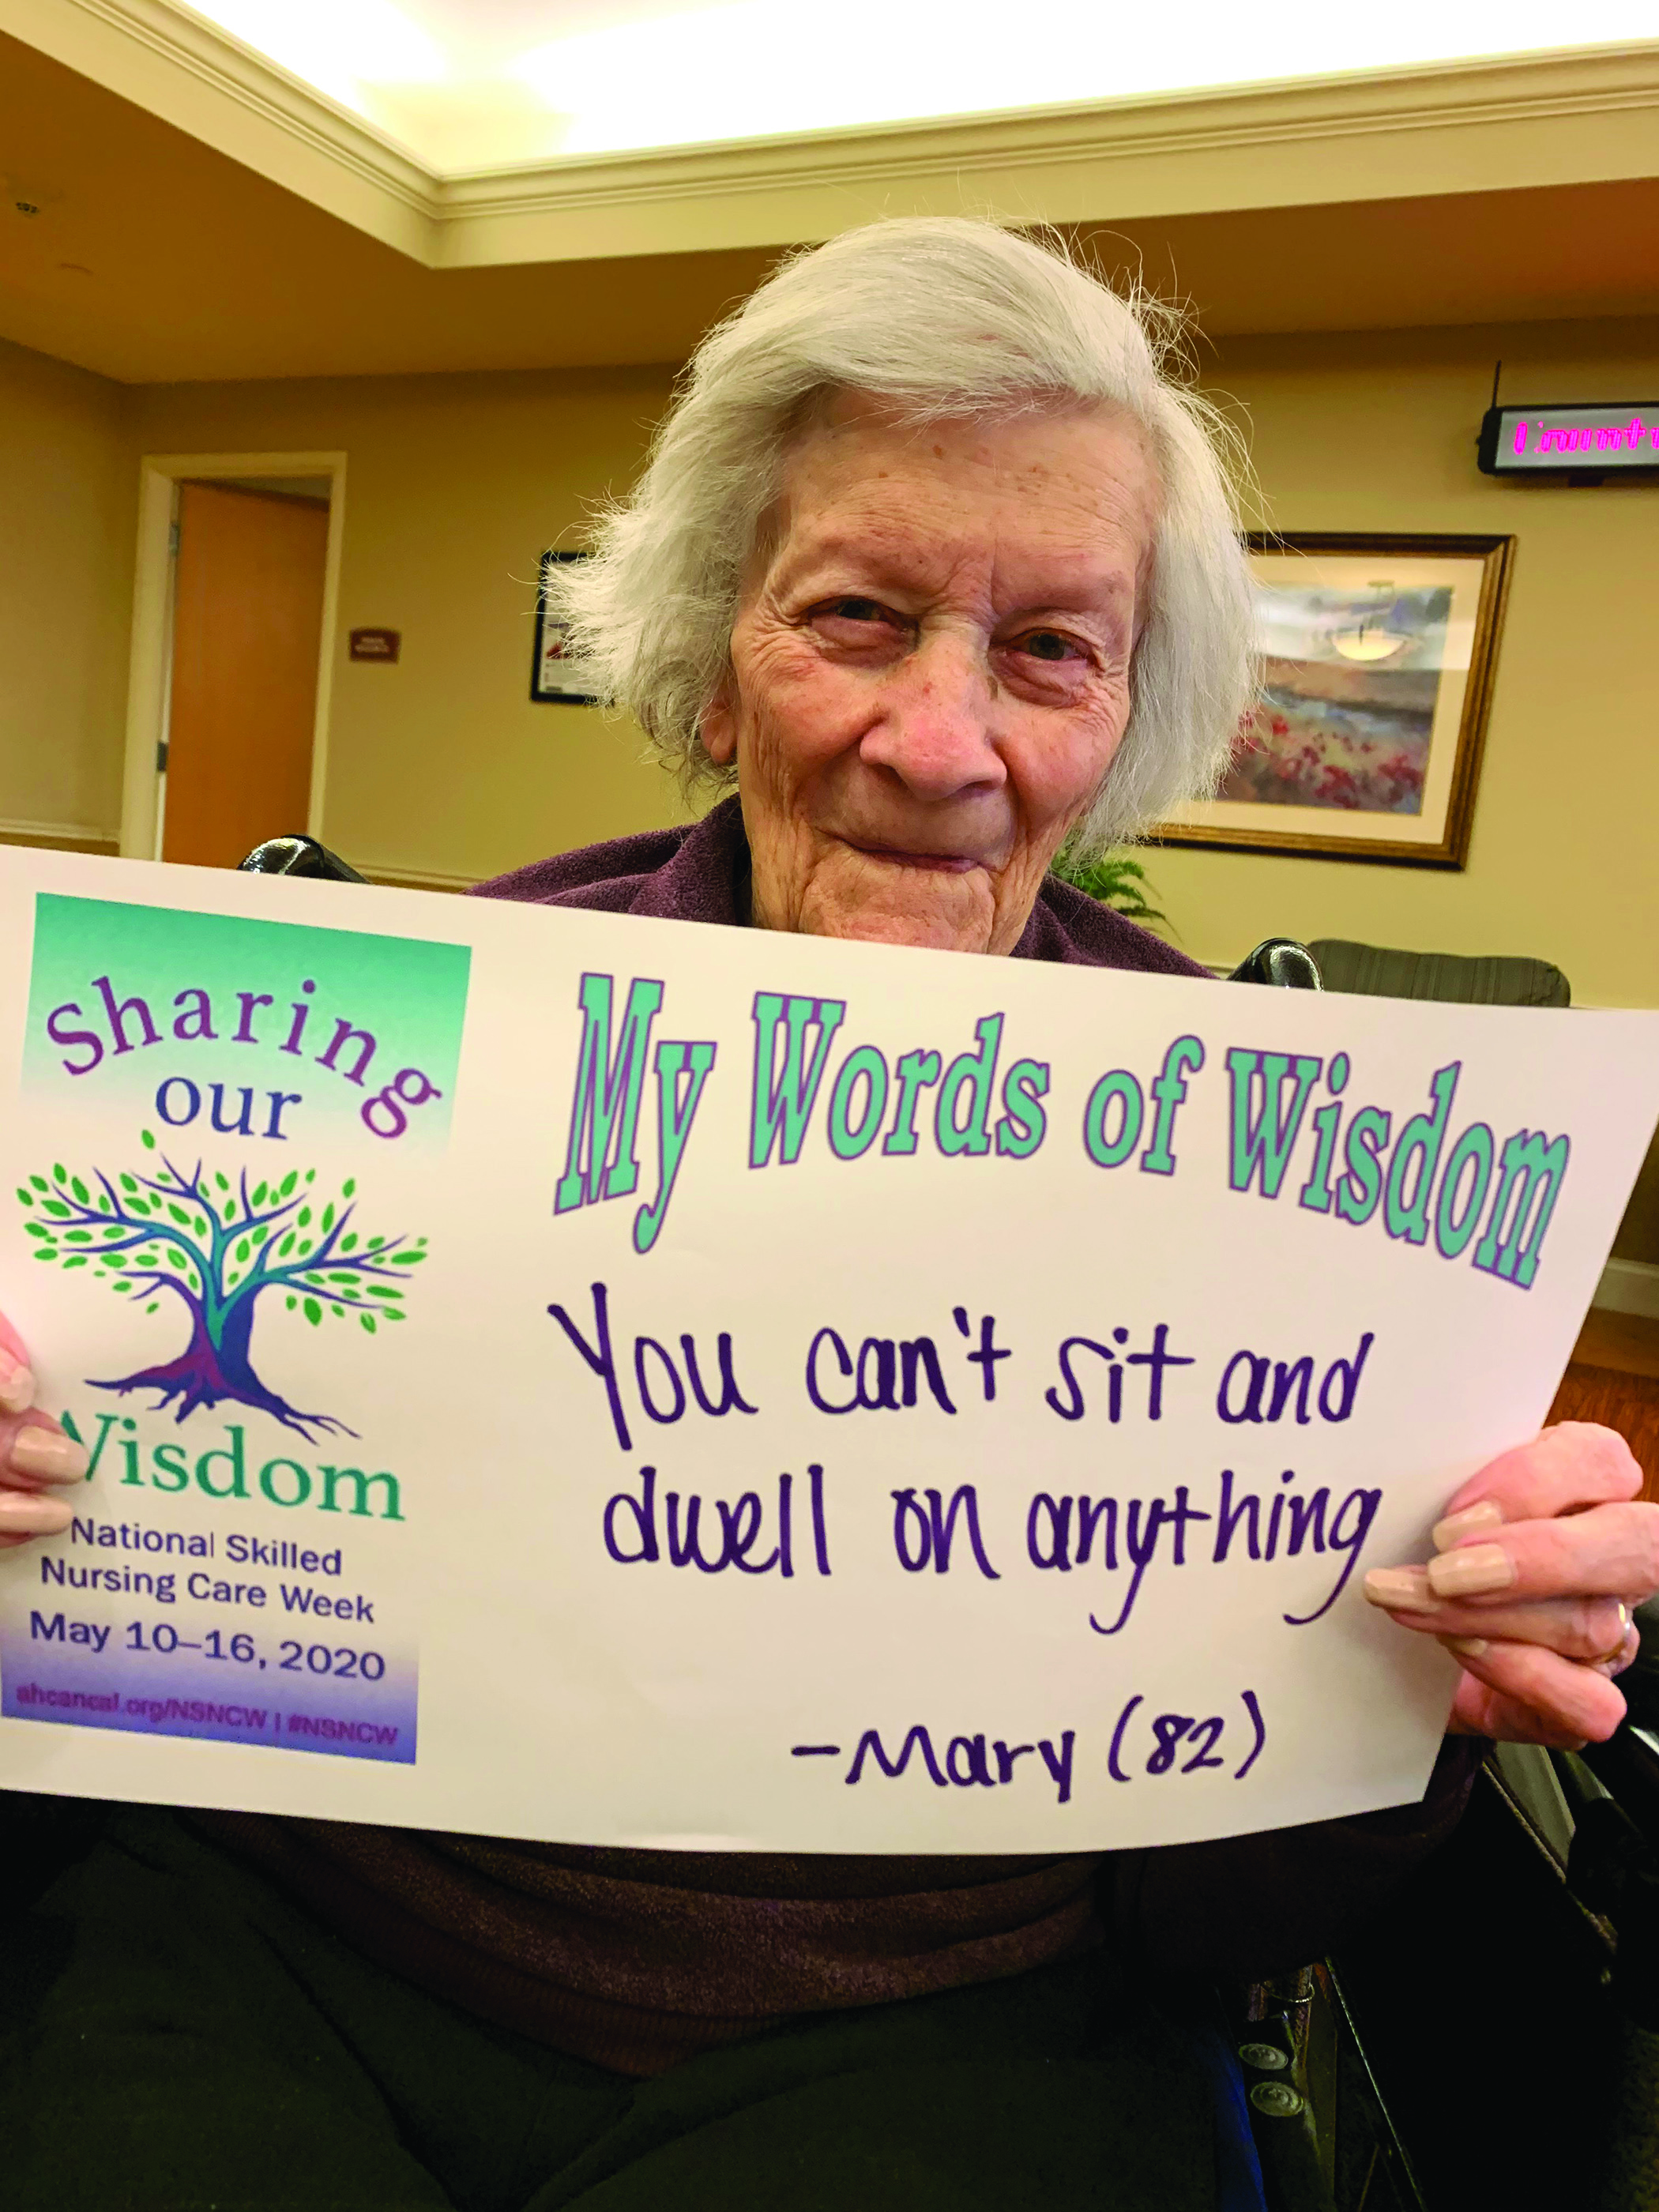 Sharing
our
Wisdom
National Skilled
Nursing Care Week
May 10–16, 2020
ahcancal.org/NSNCW | #NSNCW
My Words of Wisdom
You can't sit and
dwell on anything
-Mary (82)